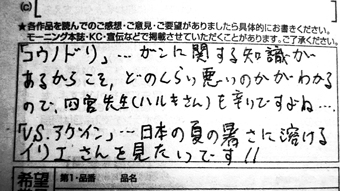 (c)
★各作品を読んでのご感想・ご意見・ご要望がありましたら具体的にお書きください。
モーニング本誌・KC・宣伝などで掲載させていただくことがあります。ご了承ください。
「コウノドリ」…ガンに関する知識が
あるからこそ、どのくらい悪いのかがわかる
ので、四宮先生(ハルキさん)も辛いですよね…
「VS.アゲイン」…日本の夏の暑さに溶ける
イリエさんを見たいっです!!
希望
第1・品番
品名